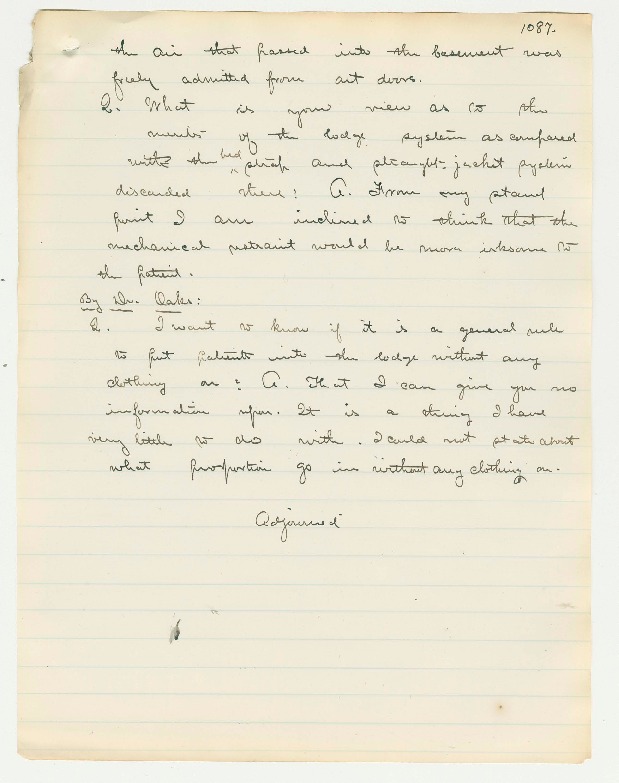 1087.
the air that passed into the basement was
freely admitted from out doors.
Q. What is your view as to the
merits of the lodge system as compared
with the bed strap and straight-jacket system
discarded there? A. From my stand
point I am inclined to think that the
mechanical restraint would be more irksome to
the patient.
By Dr. Oaks:
Q. I want to know if it is a general rule
to put patients into the lodge without any
clothing on? A. That I can give you no
information upon. It is a thing I have
very little to do with. I could not state about
what proportion go in without any clothing on.
Adjourned